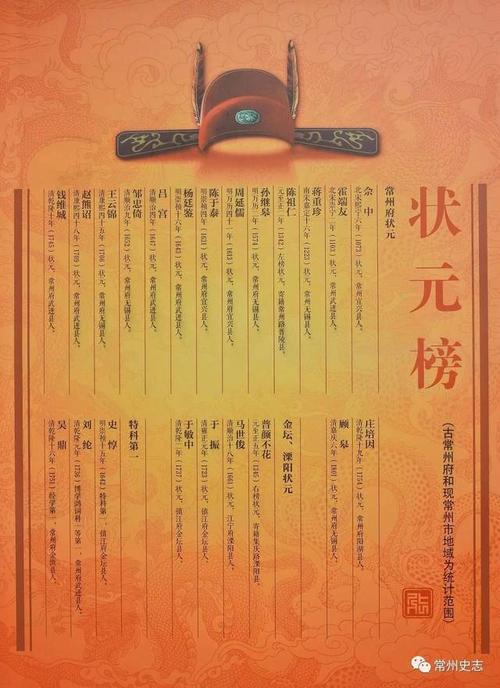 状元榜
(古常州府和现常州市地域为统计范围)
常州府状元
佘中
北宋熙宁六年(1073)状元,常州宜兴县人。
霍端友
北宋崇宁二年(1103)状元,常州武进县人。
蒋重珍
南宋嘉定十六年(1223)状元,常州无锡县人。
陈祖仁
元至正二年(1342)左榜状元,寄籍常州路晋陵县。
孙继皋
明万历二年(1574)状元,常州府无锡县人。
周延儒
明万历四十一年(1613)状元,常州府宜兴县人。
陈于泰
明崇祯四年(1631)状元,常州府宜兴县人。
杨廷鉴
明崇祯十六年(1643)状元,常州府武进县人。
吕宫
清顺治四年(1647)状元,常州府武进县人。
邹忠倚
清顺治九年(1652)状元,常州府无锡县人。
王云锦
清康熙四十五年(1706)状元,常州府无锡县人。
赵熊诏
清康熙四十八年(1709)状元,常州府武进县人。
钱维城
清乾隆十年(1745)状元,常州府武进县人。
庄培因
清乾隆十九年(1754)状元,常州府阳湖县人。
顾皋
清嘉庆六年(1801)状元,常州府无锡县人。
金坛、溧阳状元
普颜不花
元至正五年(1345)右榜状元,寄籍集庆路溧阳县。
马世俊
清顺治十八年(1661)状元,江宁府溧阳县人。
于振
清雍正元年(1723)状元,镇江府金坛县人。
于敏中
清乾隆二年(1737)状元,镇江府金坛县人。
特科第一
史惇
明崇祯十五年(1642)特科第一,镇江府金坛县人。
刘纶
清乾隆元年(1736)博学鸿词科一等第一,常州府武进县人。
吴鼎
清乾隆十六年(1751)经学第一,常州府金匮县人。
常州史志